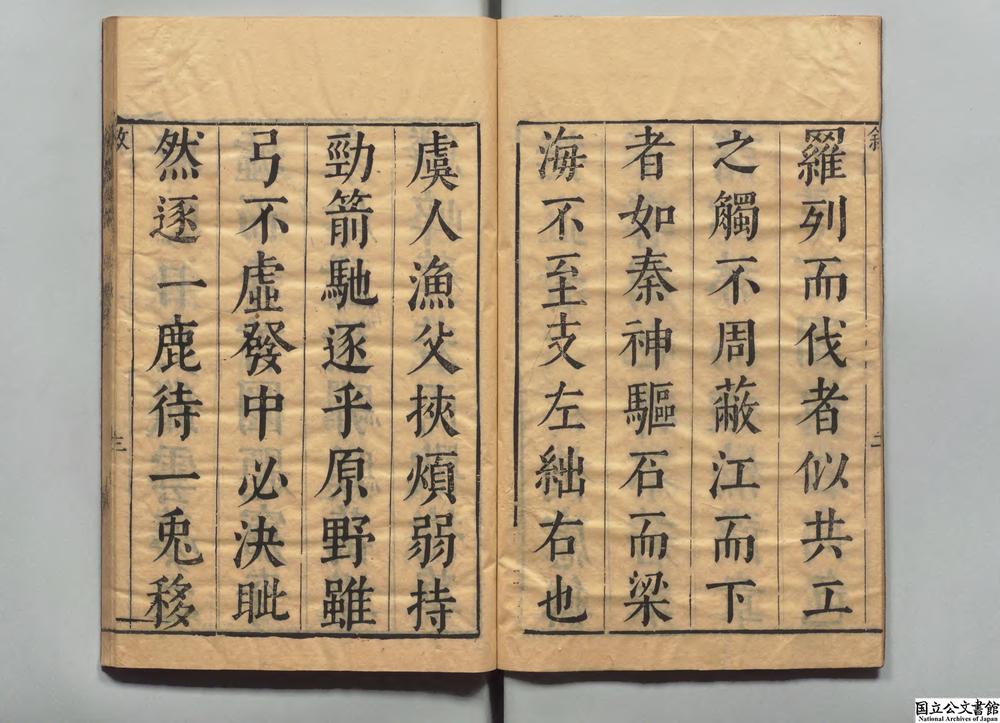 羅列而伐者似共工
之觸不周蔽江而下
者如秦神驅石而梁
海不至支左絀右也
虞人漁父挾煩弱持
勁箭馳逐乎原野雖
弓不虛發中必決眦
然逐一鹿待一兎移
二
三
国立公文書館
National Archives of Japan